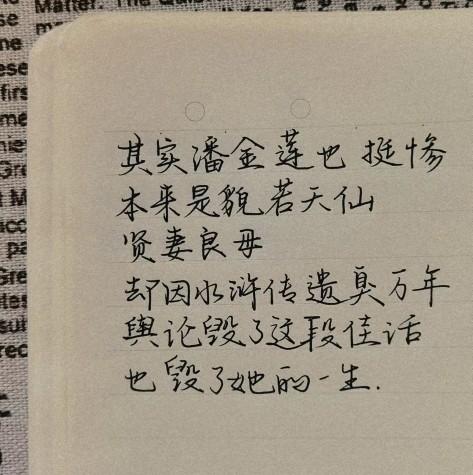 Matter. The
ese
first
me
Gre
M
acc
pa
Gre
sul
rec
其实潘金莲也挺惨
本来是貌若天仙
贤妻良母
却因水浒传遗臭万年
舆论毁了这段佳话
也毁了她的一生.